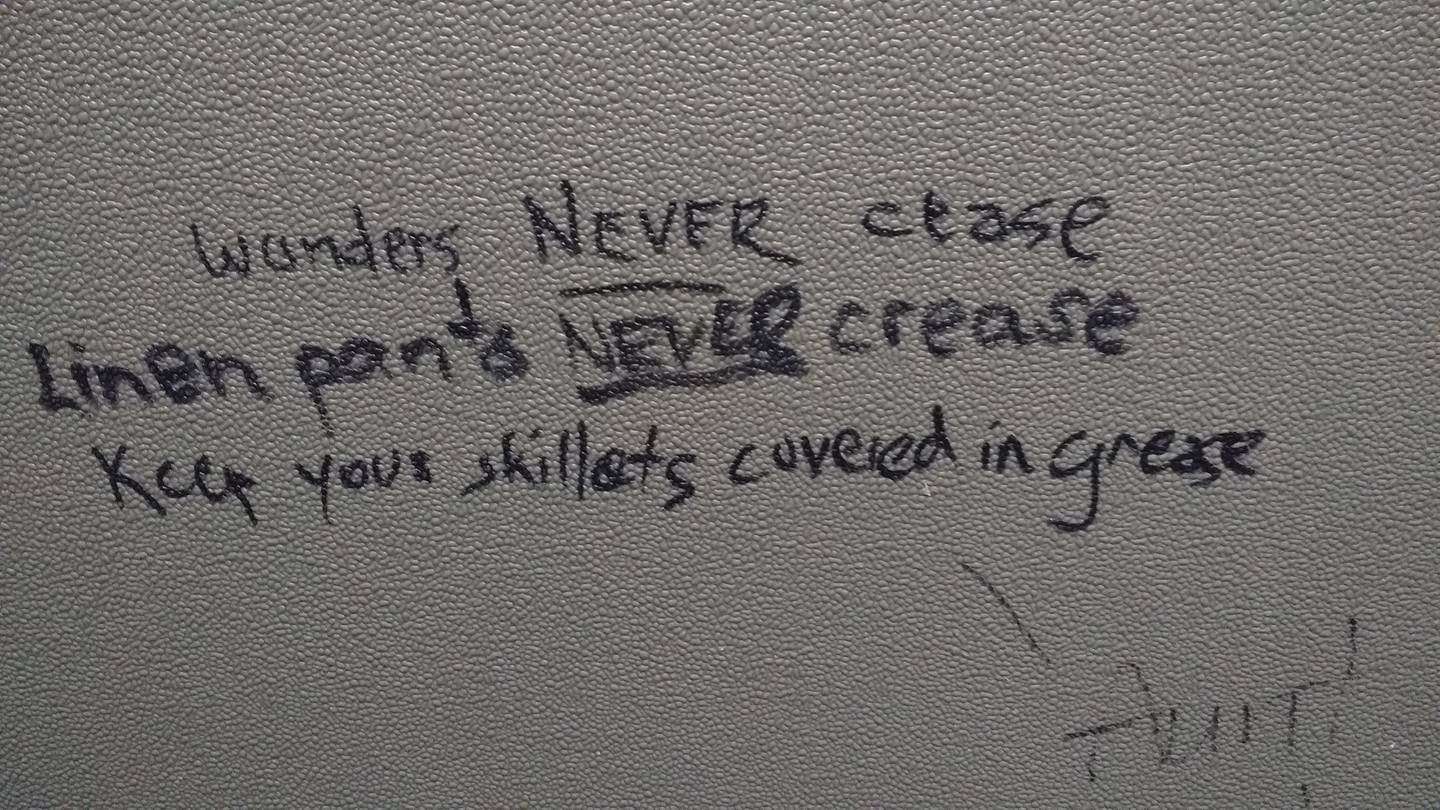 Wonders NEVER cease
Linen pants NEVER crease
Keep your skillets covered in grease